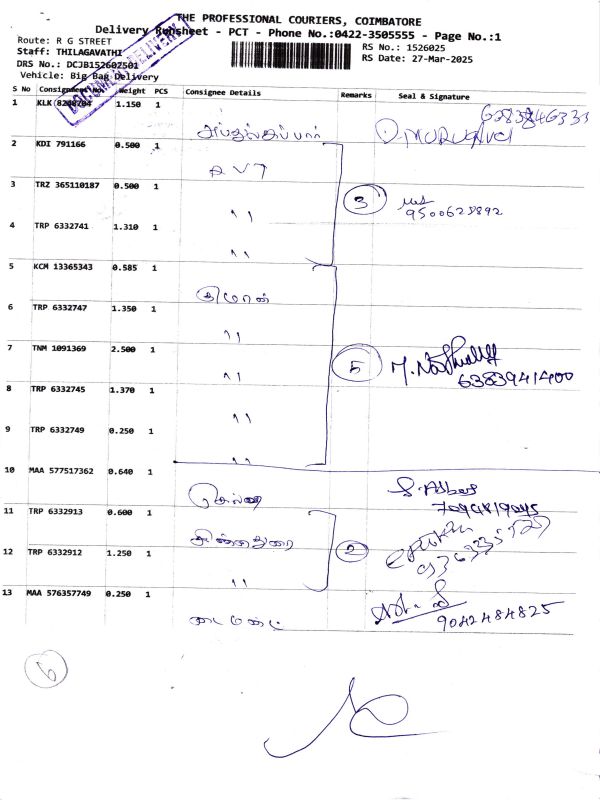 THE PROFESSIONAL COURIERS, COIMBATORE
Delivery Runsheet - PCT - Phone No.:0422-3505555 - Page No.:1
Route: R G STREET
RS No.: 1526025
Staff: THILAGAVATHI
RS Date: 27-Mar-2025
DRS No.: DCJB152602501
Vehicle: Big Bag Delivery
DOCUMENT DELIVERY
S No Consignment No. Weight PCS Consignee Details Remarks Seal & Signature
1 KLK 1.150 1
அப்துல்கப்பார் D. MURUGAN
2 KDI 791166 0.500 1
AVT
3 TRZ 365110187 0.500 1 3
9500625892
" "
4 TRP 6332741 1.310 1
" "
5 KCM 13365343 0.585 1
டிமோன்
6 TRP 6332747 1.350 1
" "
7 TNM 1091369 2.500 1 5
6383941400
" "
8 TRP 6332745 1.370 1
" "
9 TRP 6332749 0.250 1
" "
10 MAA 577517362 0.640 1
செல்வ S. Abbas
7094819045
11 TRP 6332913 0.600 1
சின்னதுரை
12 TRP 6332912 1.250 1 2
" "
13 MAA 576357749 0.250 1
டைமண்ட் 9042484825
6